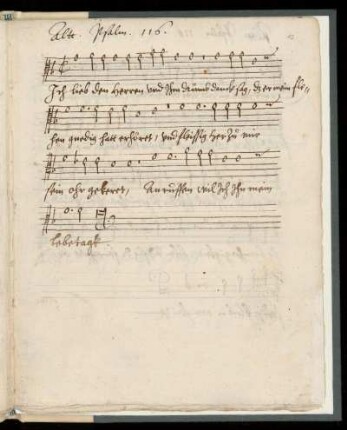 Alt. Psalm. 116.
Ich lieb den Herren und Ihm drumb danck sag, dz er mein fle-
hen gnedig hatt erhöret, und fleissig her zu mir
sein ohr gekeret, Anruffen wil Ich Ihn mein
lebetage.